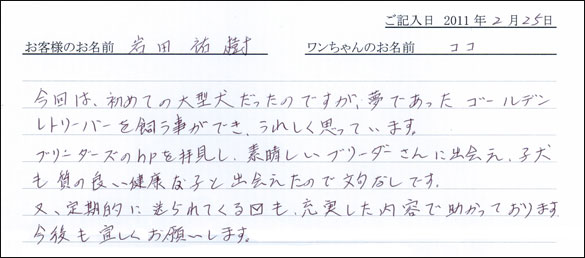 ご記入日 2011年2月25日
お客様のお名前 岩田 祐樹 ワンちゃんのお名前 ココ
今回は、初めての大型犬だったのですが、夢であった ゴールデン
レトリーバーを飼う事ができ、うれしく思っています。
ブリーダーズのhpを拝見し、素晴しいブリーダーさんに出会え、子犬
も質の良い健康な子と出会えたので文句なしです。
又、定期的に送られてくる図も、充実した内容で助かっております
今後も宜しくお願いします。